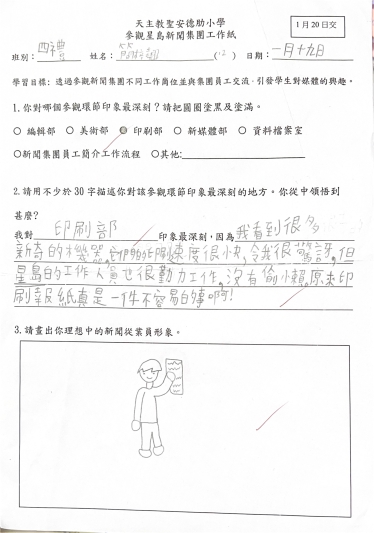 天主教聖安德肋小學
參觀星島新聞集團工作紙
1月20日交
班別：四禮 姓名： (12) 日期：一月十九日
學習目標：透過參觀新聞集團不同工作崗位並與集團員工交流，引發學生對媒體的興趣。
1.你對哪個參觀環節印象最深刻？請把圓圈塗黑及塗滿。
○ 編輯部 ○ 美術部 ● 印刷部 ○ 新媒體部 ○ 資料檔案室
○新聞集團員工簡介工作流程 ○其他:
2.請用不少於 30 字描述你對該參觀環節印象最深刻的地方。你從中領悟到
甚麼?
我對 印刷部 印象最深刻，因為 我看到很多
新奇的機器,它們的印刷速度很快,令我很驚訝,但
星島的工作人員也很勤力工作,沒有偷小懶,原來印
刷報紙真是一件不容易的事啊!
3.請畫出你理想中的新聞從業員形象。